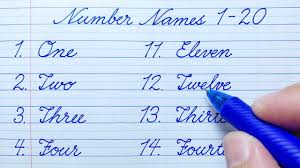 Number Names 1-20
1. One 11. Eleven
2. Two 12. Twelve
3. Three 13.
4. Four 14.